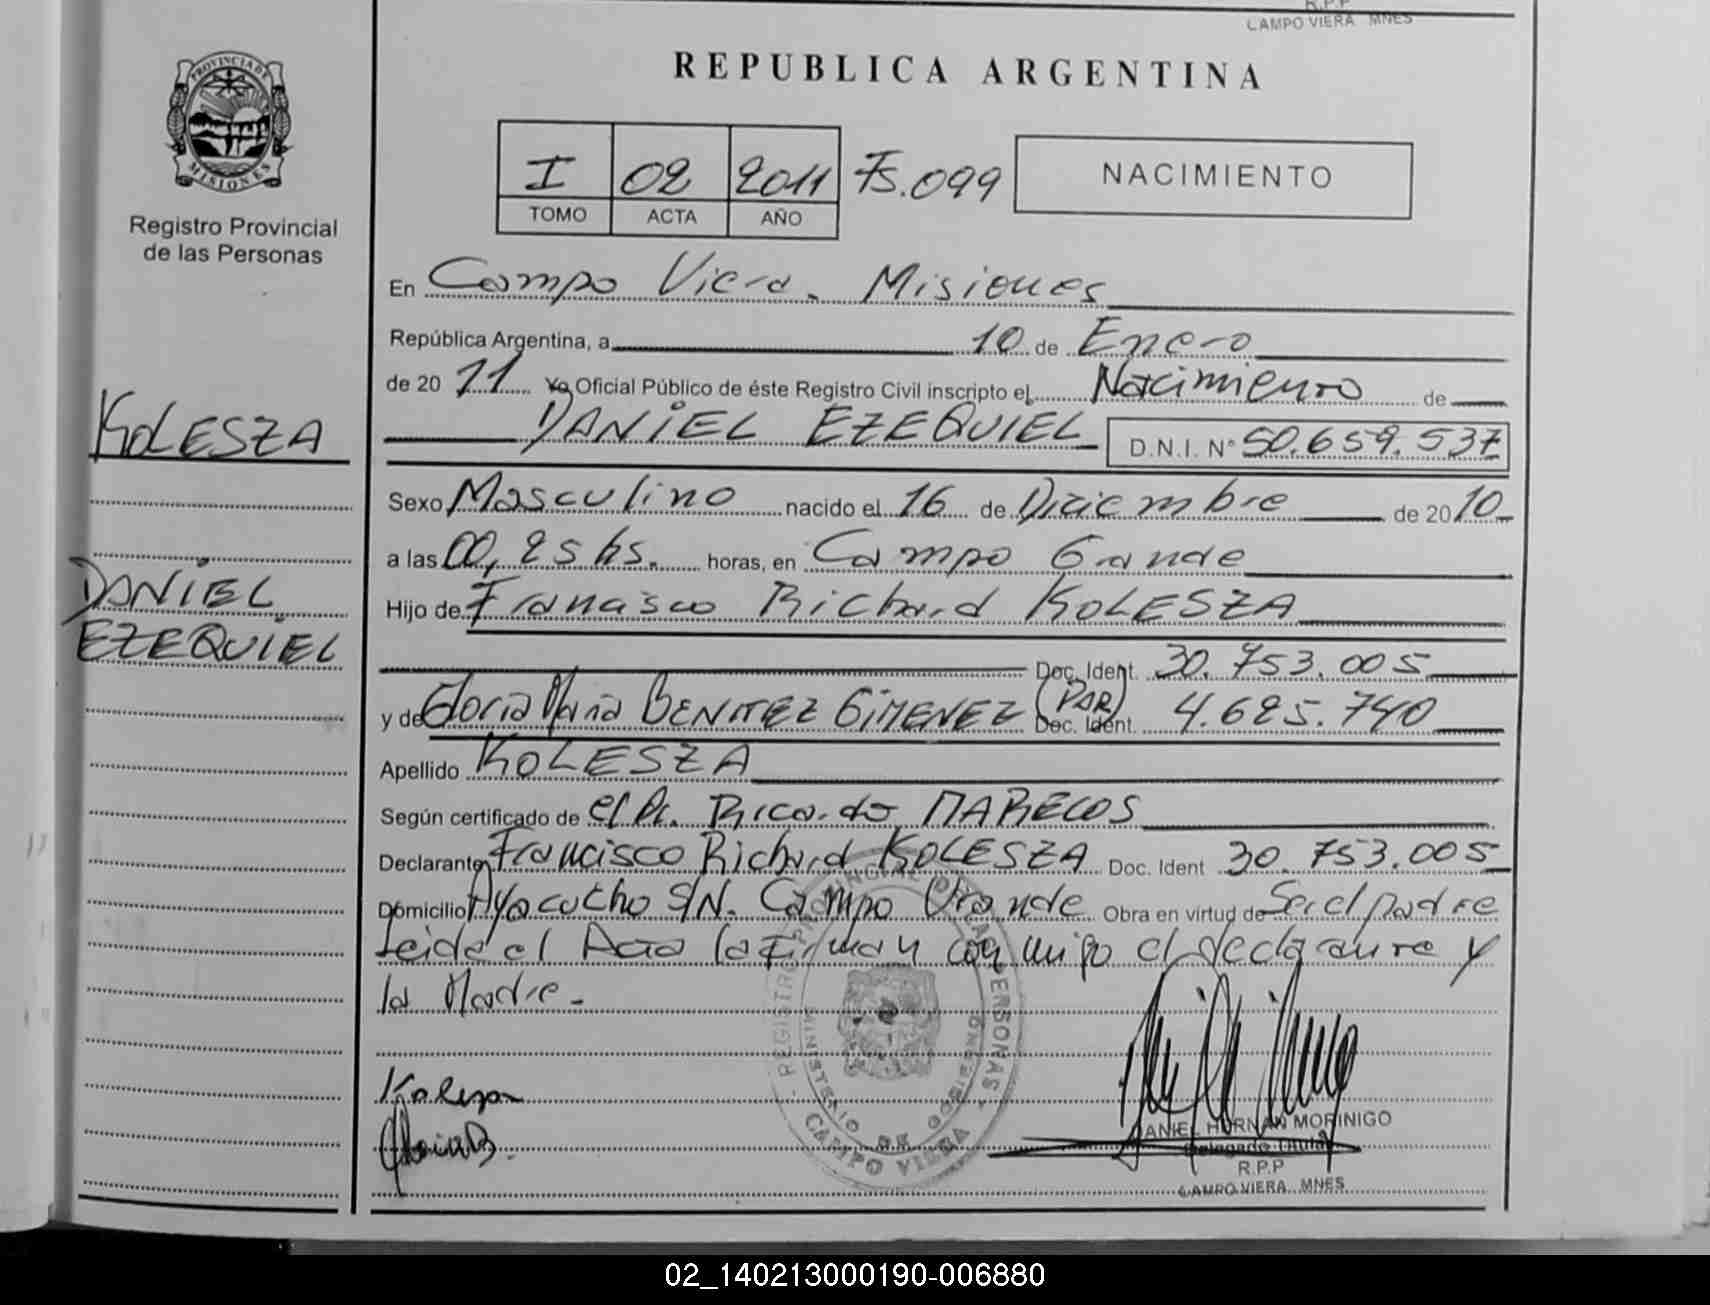 R.P.P
CAMPO VIERA MNES
REPUBLICA ARGENTINA
PROVINCIA DE MISIONES
Registro Provincial
de las Personas
I 02 2011 Fs.099
TOMO ACTA AÑO
NACIMIENTO
En Campo Viera. Misiones
República Argentina, a 10 de Enero
de 2011 Yo Oficial Público de éste Registro Civil inscripto el Nacimiento de
DANIEL EZEQUIEL D.N.I. N° 50.659.537
Sexo Masculino nacido el 16 de Diciembre de 2010
a las 00,25 hs. horas, en Campo Grande
Hijo de Francisco Richard KOLESZA
Doc. Ident. 30.753.005
y de Gloria Maria BENITEZ GIMENEZ (PAR) Doc. Ident. 4.625.740
Apellido KOLESZA
Según certificado de el Dr. Ricardo MARECOS
Declarante Francisco Richard KOLESZA Doc. Ident 30.753.005
Domicilio Ayacucho S/N. Campo Grande Obra en virtud de Ser el padre
Leida el Acta la Firman conmigo el declarante y
la Madre.-
KOLESZA
DANIEL
EZEQUIEL
Kolesza
Gloria B.
REGISTRO PROVINCIAL DE LAS PERSONAS
MINISTERIO DE GOBIERNO
CAMPO VIERA
DANIEL HERNAN MORINIGO
Delegado Titular
R.P.P
CAMPO VIERA MNES
02_140213000190-006880